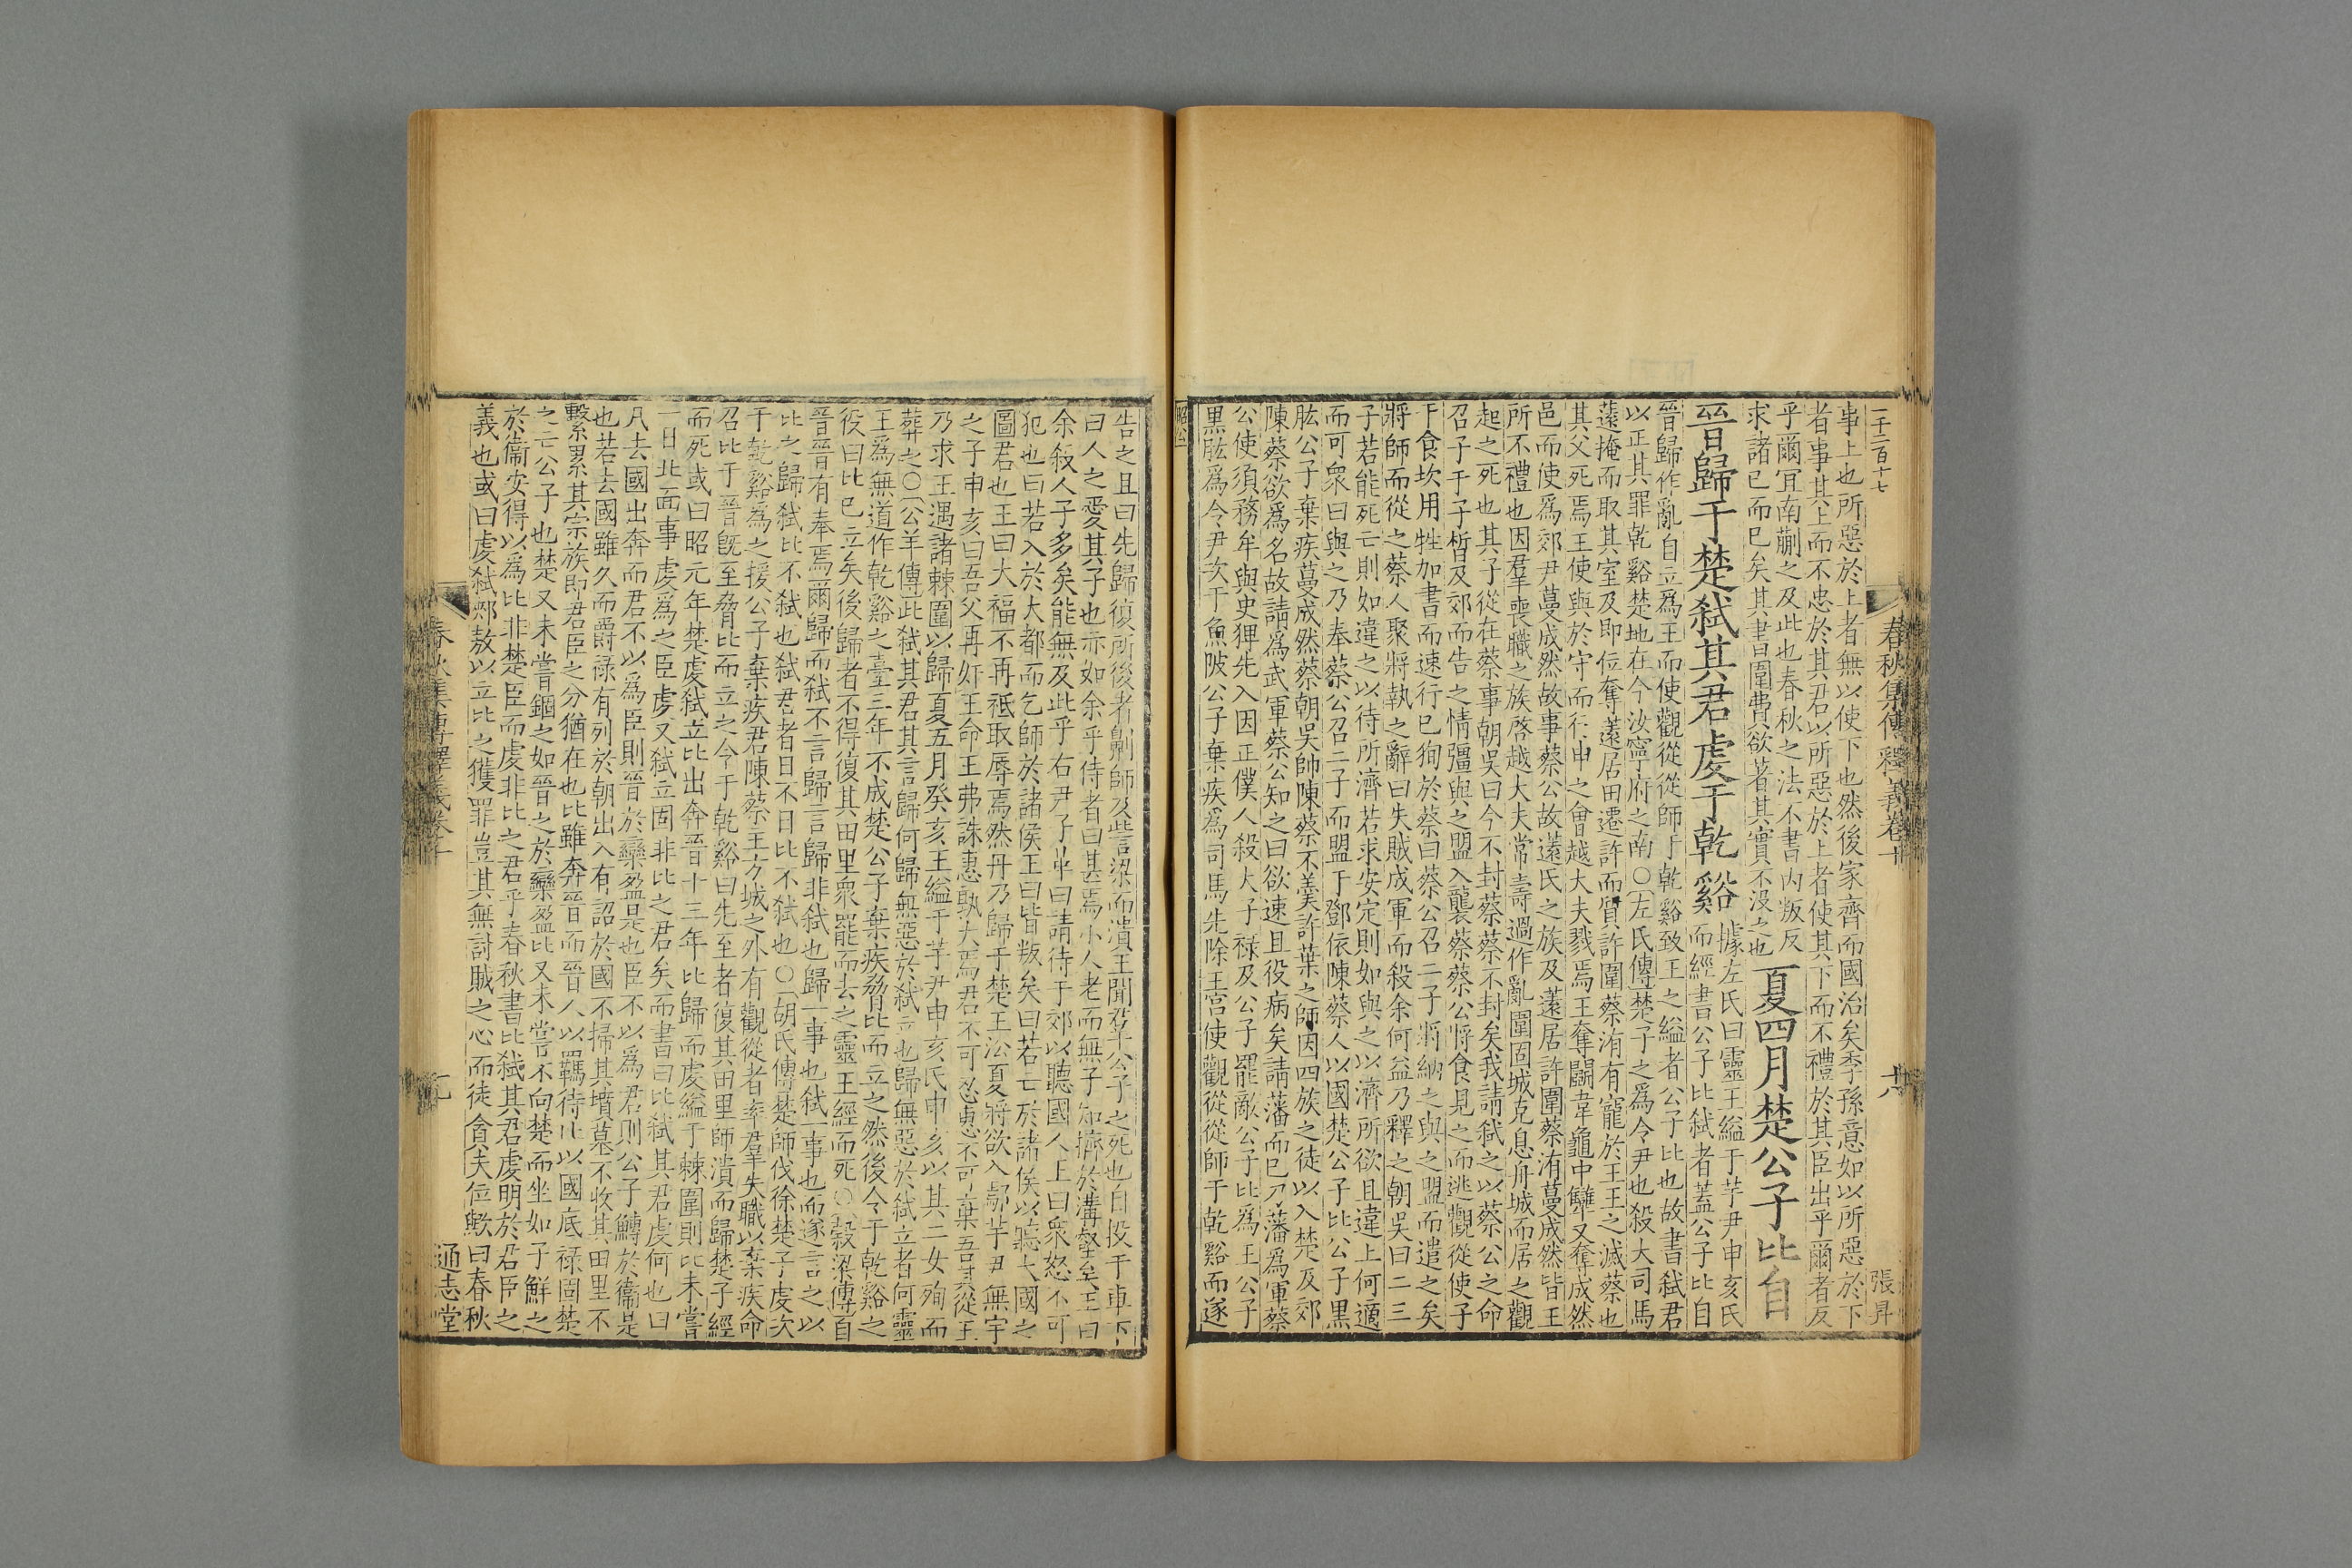 一千二百十七
春秋集傳釋義卷十
十八
張昇
事上也所惡於上者無以使下也然後家齊而國治矣季孫意如以所惡於下
者事其上而不忠於其君以所惡於上者使其下而不禮於其臣出乎爾者反
乎爾宜南蒯之及此也春秋之法不書内叛反
求諸已而已矣其書圍費欲著其實不没之也夏四月楚公子比自
晉歸于楚弑其君虔于乾谿據左氏曰靈王縊于芋尹申亥氏
而經書公子比弑者蓋公子比自
晉歸作亂自立爲王而使觀從從師于乾谿致王之縊者公子比也故書弑君
以正其罪乾谿楚地在今汝寧府之南〇左氏傳楚子之爲令尹也殺大司馬
薳掩而取其室及即位奪薳居田遷許而質許圍蔡洧有寵於王王之滅蔡也
其父死焉王使與於守而行申之會越大夫戮焉王奪鬭韋龜中犫又奪成然
邑而使爲郊尹蔓成然故事蔡公故薳氏之族及薳居許圍蔡洧蔓成然皆王
所不禮也因羣喪職之族啓越大夫常壽過作亂圍固城克息舟城而居之觀
起之死也其子從在蔡事朝吳曰今不封蔡蔡不封矣我請試之以蔡公之命
召子干子晳及郊而告之情彊與之盟入襲蔡蔡公將食見之而逃觀從使子
干食坎用牲加書而速行已狥於蔡曰蔡公召二子將納之與之盟而遣之矣
將師而從之蔡人聚將執之辭曰失賊成軍而殺余何益乃釋之朝吳曰二三
子若能死亡則如違之以待所濟若求安定則如與之以濟所欲且違上何適
而可衆曰與之乃奉蔡公召二子而盟于鄧依陳蔡人以國楚公子比公子黑
肱公子棄疾蔓成然蔡朝吳帥陳蔡不羹許葉之師因四族之徒以入楚及郊
陳蔡欲爲名故請爲武軍蔡公知之曰欲速且役病矣請藩而已乃藩爲軍蔡
公使須務牟與史猈先入因正僕人殺大子祿及公子罷敵公子比爲王公子
黑肱爲令尹次于魚陂公子棄疾爲司馬先除王宫使觀從從師于乾谿而遂
昭公
告之且曰先歸復所後者劓師及訾梁而潰王聞羣公子之死也自投于車下
曰人之愛其子也亦如余乎侍者曰甚焉小人老而無子知擠於溝壑矣王曰
余殺人子多矣能無及此乎右尹子革曰請待于郊以聽國人王曰衆怒不可
犯也曰若入於大都而乞師於諸侯王曰皆叛矣曰若亡於諸侯以聽大國之
圖君也王曰大福不再祇取辱焉然丹乃歸于楚王沿夏將欲入鄢芋尹無宇
之子申亥曰吾父再奸王命王弗誅惠孰大焉君不可忍惠不可棄吾其從王
乃求王遇諸棘圍以歸夏五月癸亥王縊于芋尹申亥氏申亥以其二女殉而
葬之〇公羊傳此弑其君其言歸何歸無惡於弑立也歸無惡於弑立者何靈
王爲無道作乾谿之臺三年不成楚公子棄疾脅比而立之然後令于乾谿之
役曰比已立矣後歸者不得復其田里衆罷而去之靈王經而死〇穀梁傳自
晉晉有奉焉爾歸而弑不言歸言歸非弑也歸一事也弑一事也而遂言之以
比之歸弑比不弑也弑君者日不日比不弑也〇胡氏傳楚師伐徐楚子虔次
于乾谿爲之援公子棄疾君陳蔡主方城之外有觀從者率羣失職以棄疾命
召比于晉旣至脅比而立之令于乾谿曰先至者復其田里師潰而歸楚子經
而死或曰昭元年楚虔弑立比出奔晉十三年比歸而虔縊于棘圍則比未嘗
一日北面事虔爲之臣虔又弑立固非比之君矣而書曰比弑其君虔何也曰
凡去國出奔而君不以爲臣則晉於欒盈是也臣不以爲君則公子鱄於衞是
也若去國雖久而爵祿有列於朝出入有詔於國不掃其墳墓不收其田里不
繫累其宗族即君臣之分猶在也比雖奔晉而晉人以羈待比以國底祿固楚
之亡公子也楚又未嘗錮之如晉之於欒盈比又未嘗不向楚而坐如子鮮之
於衞安得以爲比非楚臣而虔非比之君乎春秋書比弑其君虔明於君臣之
義也或曰虔弑郟敖以立比之獲罪豈其無討賊之心而徒貪夫位歟曰春秋
春秋集傳釋義卷十
十九
通志堂